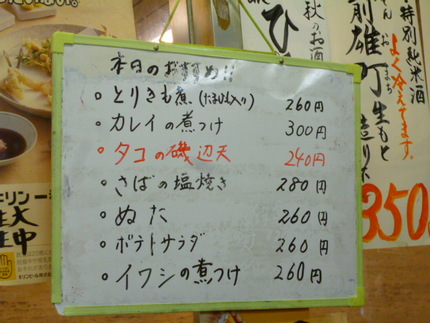 本日のおすすめ!!
・とりきも煮(たまひも入り) 260円
・カレイの煮つけ 300円
・タコの磯辺天 240円
・さばの塩焼き 280円
・ぬた 260円
・ポテトサラダ 260円
・イワシの煮つけ 260円
秋のお酒
ひ
特別純米酒
よく冷えてます。
前雄町生もと造り
350
キリン一